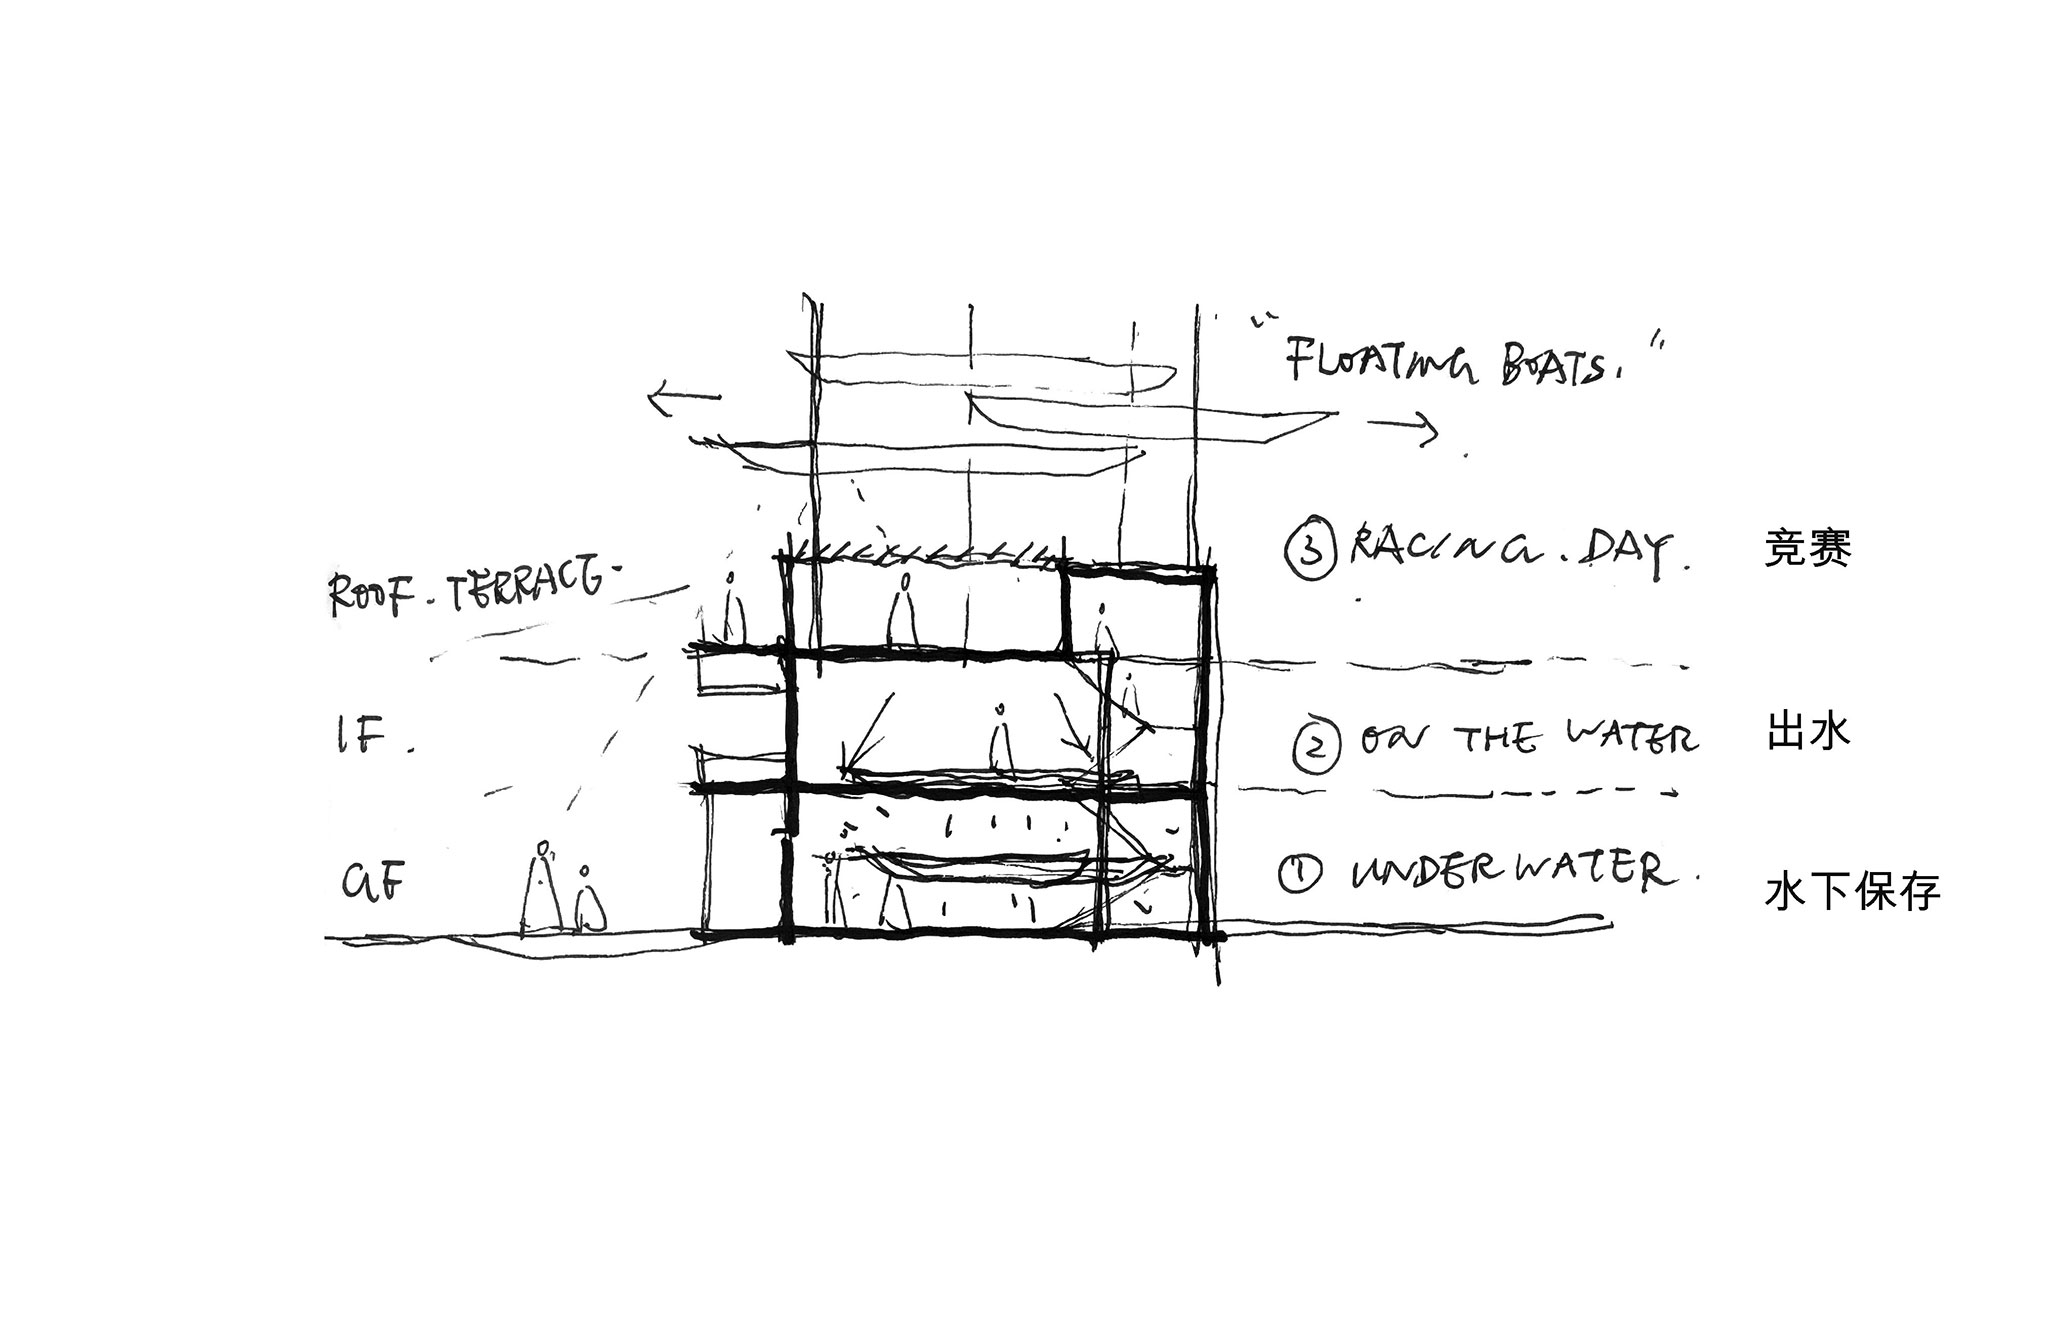 "FLOATING BOATS."
③ RACING. DAY. 竞赛
ROOF. TERRACE.
1F. ② ON THE WATER 出水
GF ① UNDERWATER. 水下保存